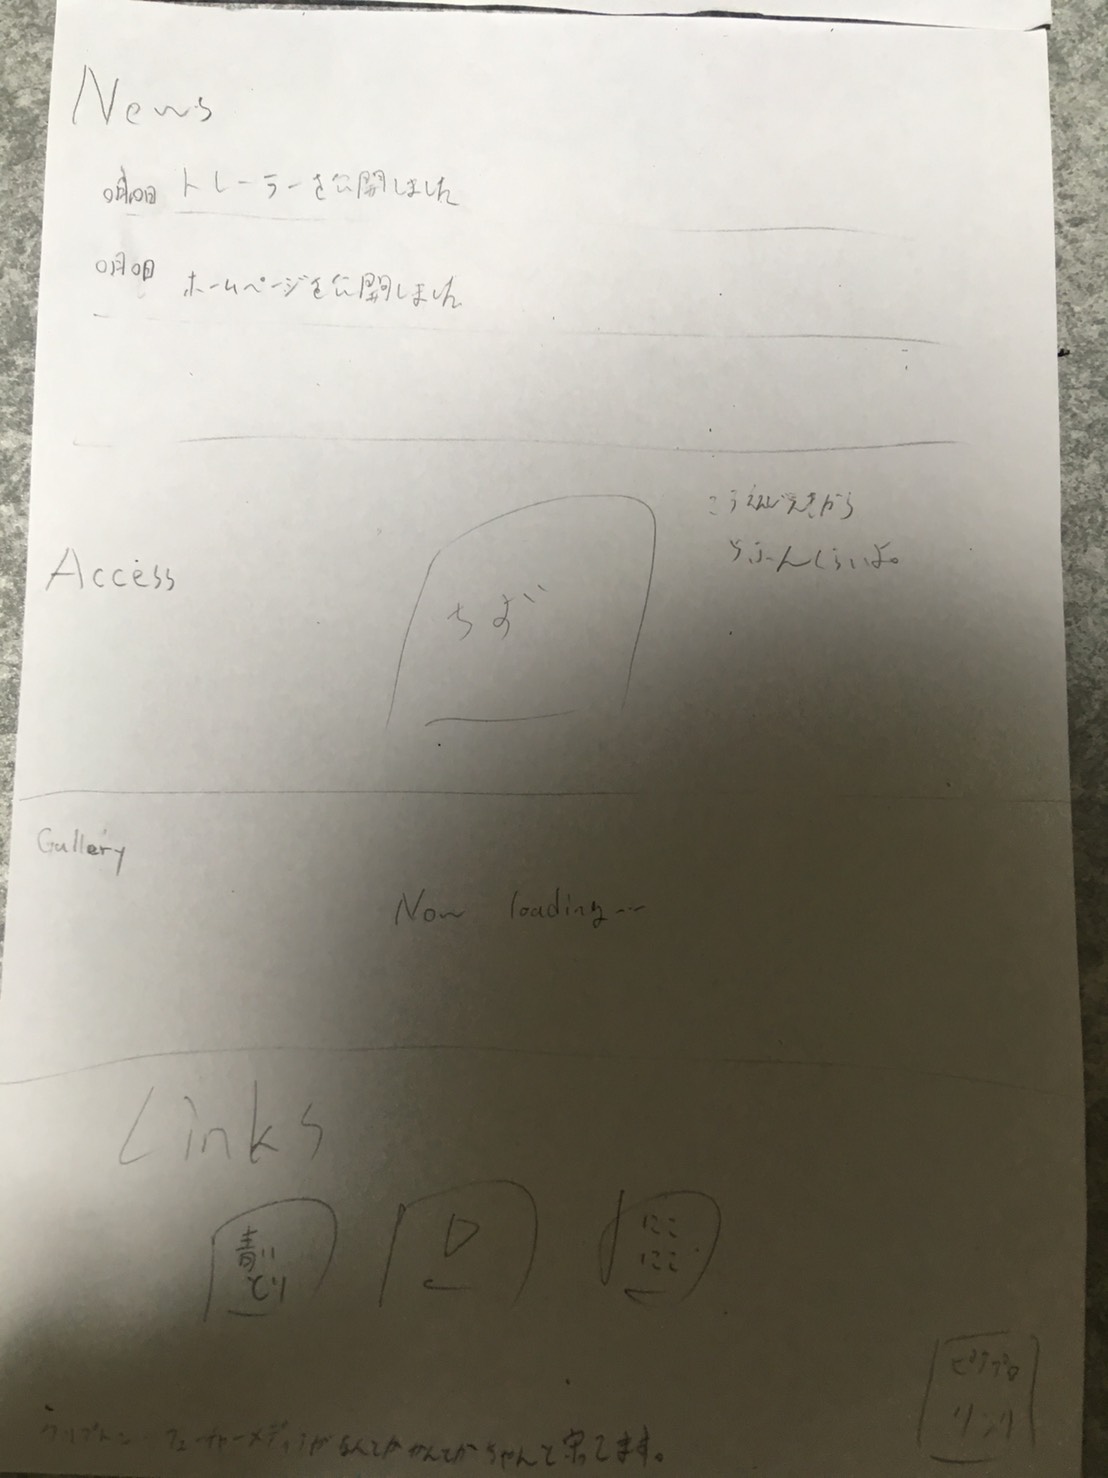 News
○月○日 トレーラーを公開しました
○月○日 ホームページを公開しました
Access
ちず
こうえんじえきから
5ふんくらいだよ。
Gallery
Now loading...
Links
青い
とり
にこ
にこ
ピアプロ
リンク
クリプトン・フューチャー・メディアがなんとかかんとか ちゃんと守ってます。